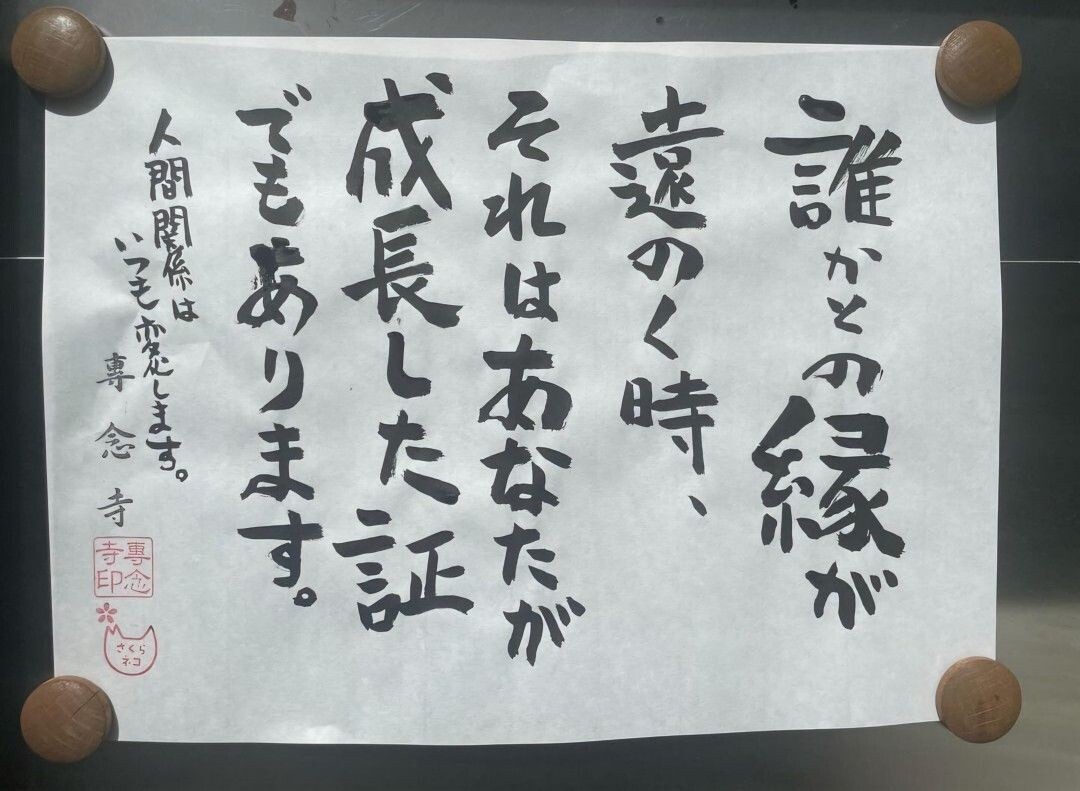 誰かとの縁が
遠のく時、
それはあなたが
成長した証
でもあります。
人間関係は
いつも変化します。
專念寺
專念
寺印
さくら
ネコ